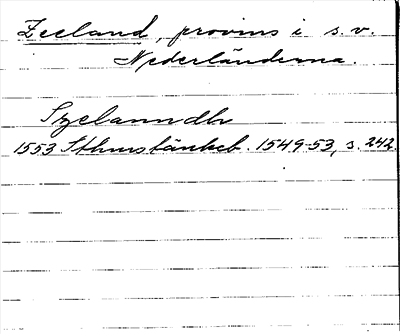 Zeeland, provins i s.v.
Nederländerna.
Szelanndh
1553 Sthmstänkeb. 1549-53, s. 242.